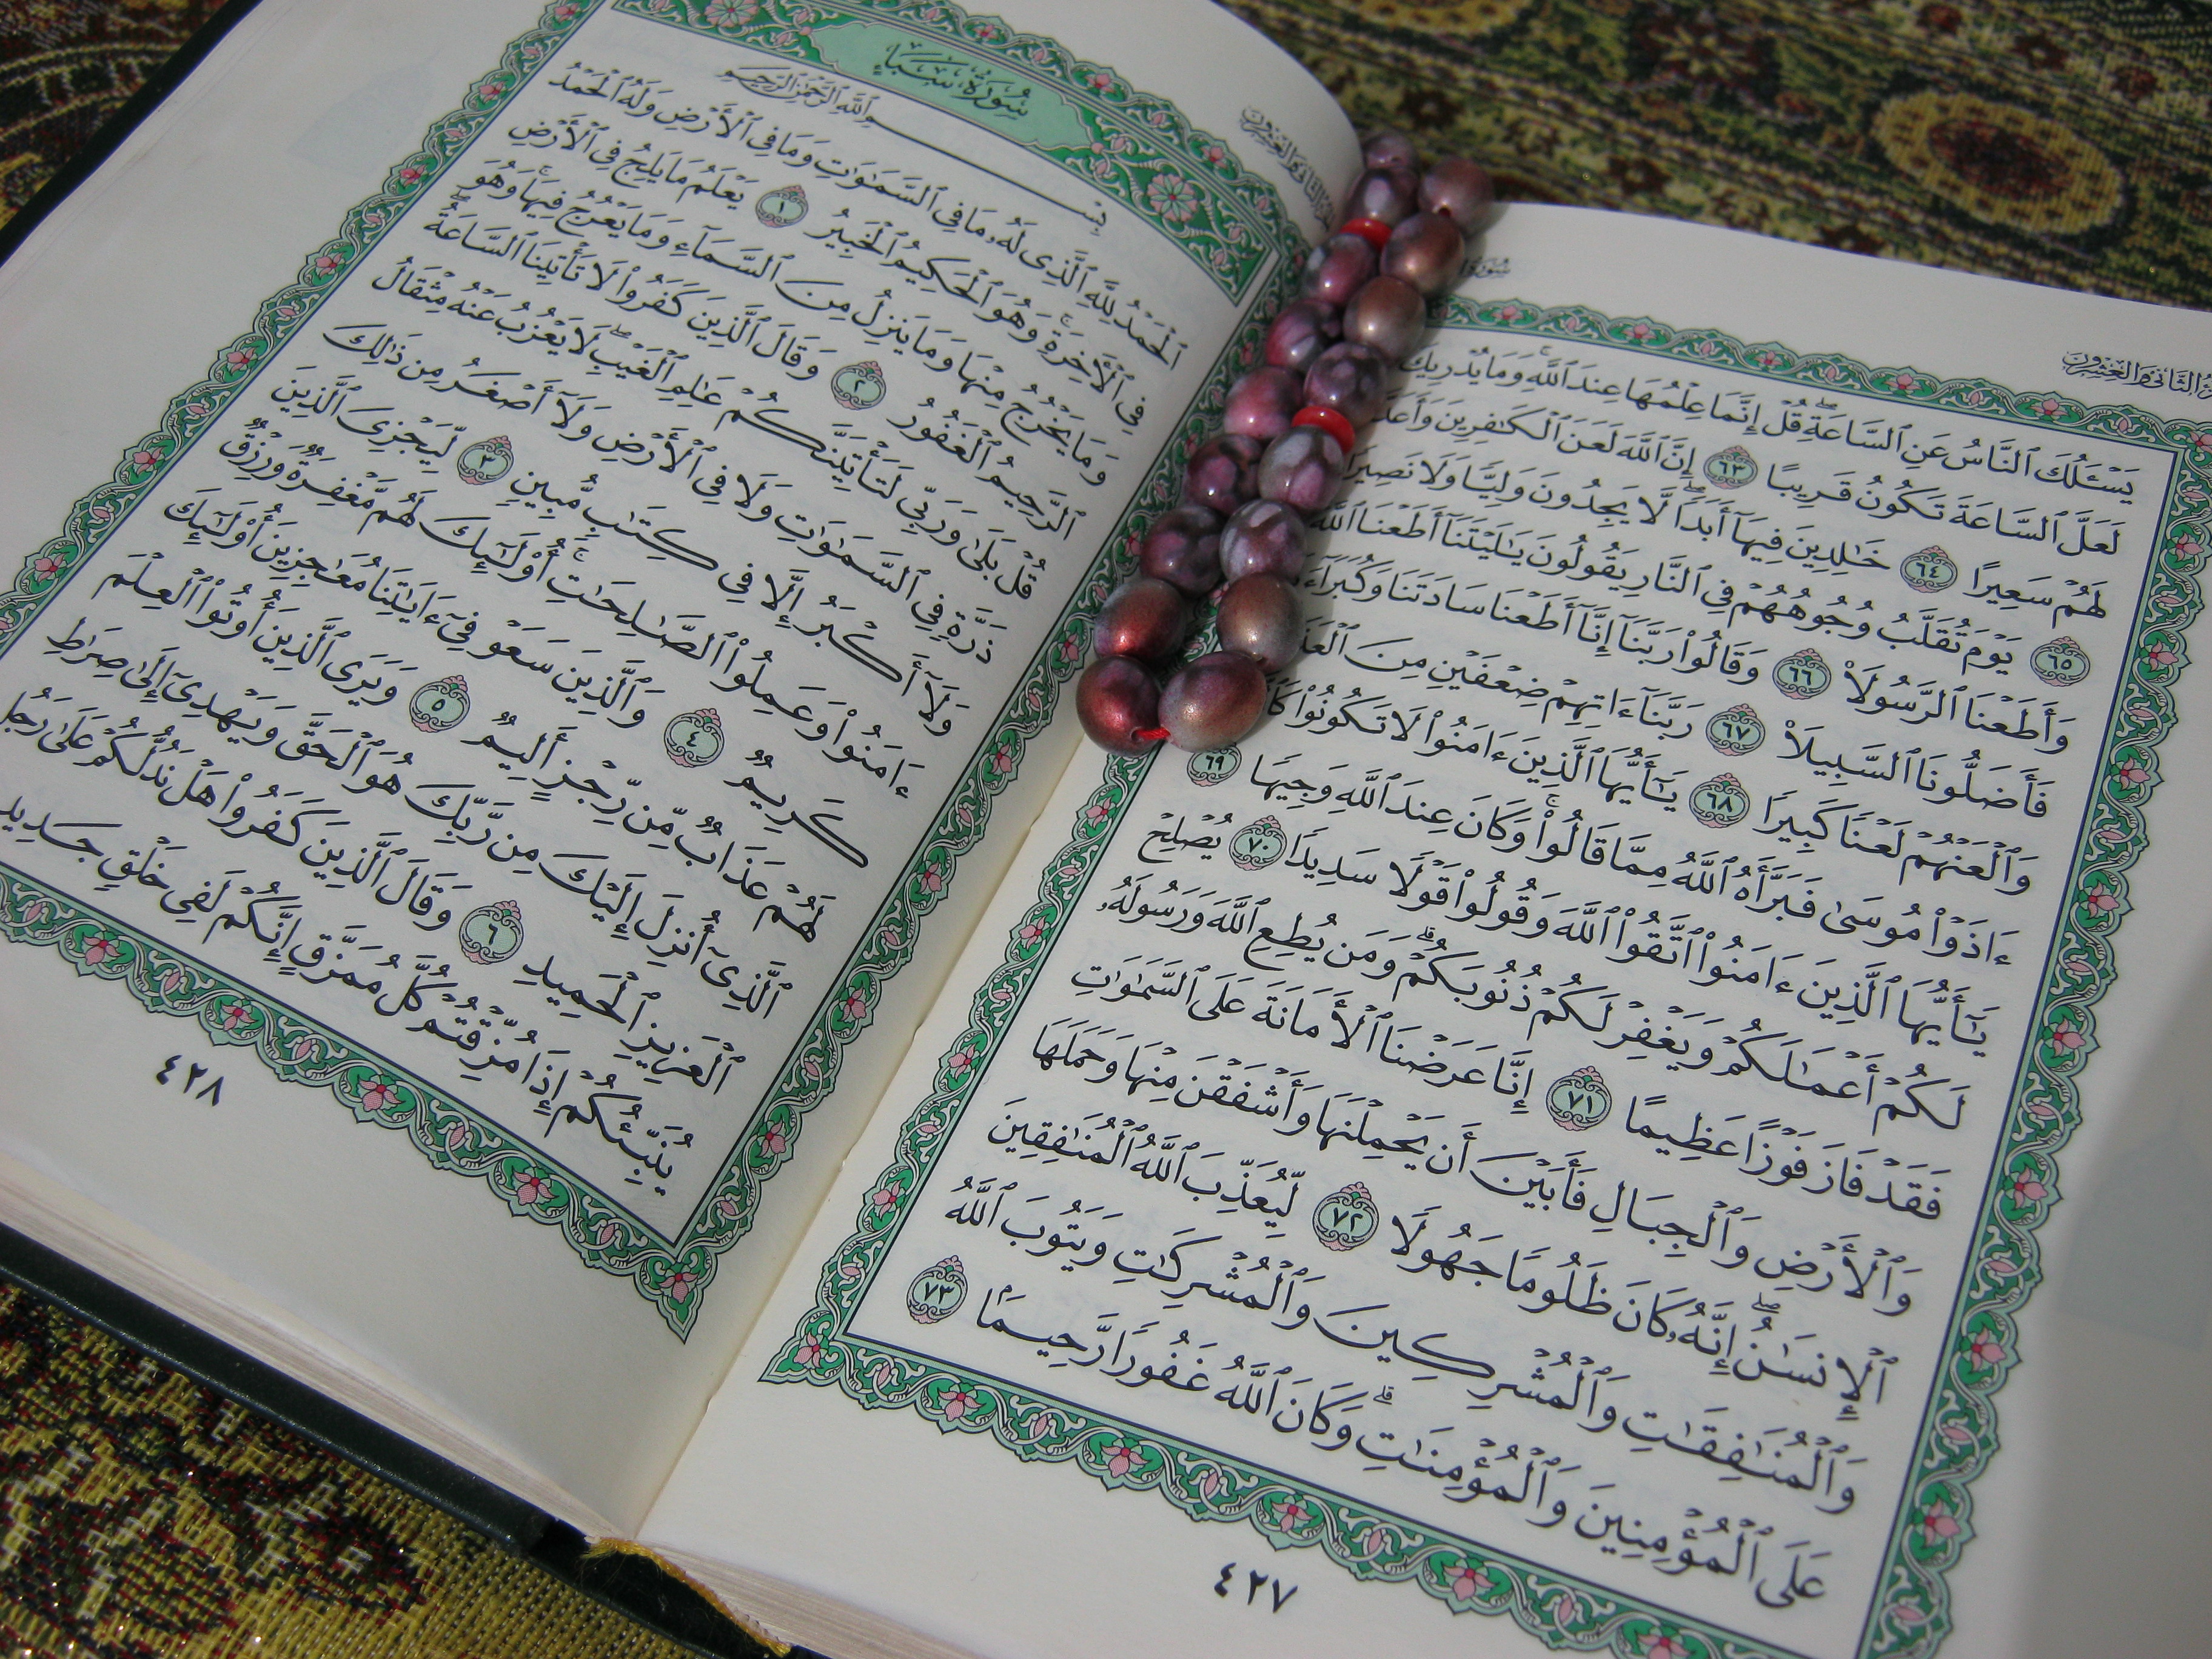 يَسْـَٔلُكَ ٱلنَّاسُ عَنِ ٱلسَّاعَةِۖ قُلْ إِنَّمَا عِلْمُهَا عِندَ ٱللَّهِۚ وَمَا يُدْرِيكَ
لَعَلَّ ٱلسَّاعَةَ تَكُونُ قَرِيبًا ٦٣ إِنَّ ٱللَّهَ لَعَنَ ٱلْكَـٰفِرِينَ وَأَعَدَّ
لَهُمْ سَعِيرًا ٦٤ خَـٰلِدِينَ فِيهَآ أَبَدًاۖ لَّا يَجِدُونَ وَلِيًّا وَلَا نَصِيرًا
٦٥ يَوْمَ تُقَلَّبُ وُجُوهُهُمْ فِى ٱلنَّارِ يَقُولُونَ يَـٰلَيْتَنَآ أَطَعْنَا ٱللَّهَ
وَأَطَعْنَا ٱلرَّسُولَا۠ ٦٦ وَقَالُوا۟ رَبَّنَآ إِنَّآ أَطَعْنَا سَادَتَنَا وَكُبَرَآءَ
فَأَضَلُّونَا ٱلسَّبِيلَا۠ ٦٧ رَبَّنَآ ءَاتِهِمْ ضِعْفَيْنِ مِنَ
وَٱلْعَنْهُمْ لَعْنًا كَبِيرًا ٦٨ يَـٰٓأَيُّهَا ٱلَّذِينَ ءَامَنُوا۟ لَا تَكُونُوا۟
ءَاذَوْا۟ مُوسَىٰ فَبَرَّأَهُ ٱللَّهُ مِمَّا قَالُوا۟ۚ وَكَانَ عِندَ ٱللَّهِ وَجِيهًا ٦٩
يَـٰٓأَيُّهَا ٱلَّذِينَ ءَامَنُوا۟ ٱتَّقُوا۟ ٱللَّهَ وَقُولُوا۟ قَوْلًا سَدِيدًا ٧٠ يُصْلِحْ
لَكُمْ أَعْمَـٰلَكُمْ وَيَغْفِرْ لَكُمْ ذُنُوبَكُمْۗ وَمَن يُطِعِ ٱللَّهَ وَرَسُولَهُۥ
فَقَدْ فَازَ فَوْزًا عَظِيمًا ٧١ إِنَّا عَرَضْنَا ٱلْأَمَانَةَ عَلَى ٱلسَّمَـٰوَٰتِ
وَٱلْأَرْضِ وَٱلْجِبَالِ فَأَبَيْنَ أَن يَحْمِلْنَهَا وَأَشْفَقْنَ مِنْهَا وَحَمَلَهَا
ٱلْإِنسَـٰنُۖ إِنَّهُۥ كَانَ ظَلُومًا جَهُولًا ٧٢ لِّيُعَذِّبَ ٱللَّهُ ٱلْمُنَـٰفِقِينَ
وَٱلْمُنَـٰفِقَـٰتِ وَٱلْمُشْرِكِينَ وَٱلْمُشْرِكَـٰتِ وَيَتُوبَ ٱللَّهُ
عَلَى ٱلْمُؤْمِنِينَ وَٱلْمُؤْمِنَـٰتِۗ وَكَانَ ٱللَّهُ غَفُورًا رَّحِيمًۢا ٧٣
٤٢٧
سُورَةُ سَبَإٍ
بِسْمِ ٱللَّهِ ٱلرَّحْمَـٰنِ ٱلرَّحِيمِ
ٱلْحَمْدُ لِلَّهِ ٱلَّذِى لَهُۥ مَا فِى ٱلسَّمَـٰوَٰتِ وَمَا فِى ٱلْأَرْضِ وَلَهُ ٱلْحَمْدُ
فِى ٱلْأَخِرَةِۚ وَهُوَ ٱلْحَكِيمُ ٱلْخَبِيرُ ١ يَعْلَمُ مَا يَلِجُ فِى ٱلْأَرْضِ
وَمَا يَخْرُجُ مِنْهَا وَمَا يَنزِلُ مِنَ ٱلسَّمَآءِ وَمَا يَعْرُجُ فِيهَاۚ وَهُوَ
ٱلرَّحِيمُ ٱلْغَفُورُ ٢ وَقَالَ ٱلَّذِينَ كَفَرُوا۟ لَا تَأْتِينَا ٱلسَّاعَةُۖ
قُلْ بَلَىٰ وَرَبِّى لَتَأْتِيَنَّكُمْ عَـٰلِمِ ٱلْغَيْبِۖ لَا يَعْزُبُ عَنْهُ مِثْقَالُ
ذَرَّةٍ فِى ٱلسَّمَـٰوَٰتِ وَلَا فِى ٱلْأَرْضِ وَلَآ أَصْغَرُ مِن ذَٰلِكَ
وَلَآ أَكْبَرُ إِلَّا فِى كِتَـٰبٍ مُّبِينٍ ٣ لِّيَجْزِىَ ٱلَّذِينَ
ءَامَنُوا۟ وَعَمِلُوا۟ ٱلصَّـٰلِحَـٰتِۚ أُو۟لَـٰٓئِكَ لَهُم مَّغْفِرَةٌ وَرِزْقٌ
كَرِيمٌ ٤ وَٱلَّذِينَ سَعَوْ فِىٓ ءَايَـٰتِنَا مُعَـٰجِزِينَ أُو۟لَـٰٓئِكَ
لَهُمْ عَذَابٌ مِّن رِّجْزٍ أَلِيمٌ ٥ وَيَرَى ٱلَّذِينَ أُوتُوا۟ ٱلْعِلْمَ
ٱلَّذِىٓ أُنزِلَ إِلَيْكَ مِن رَّبِّكَ هُوَ ٱلْحَقَّ وَيَهْدِىٓ إِلَىٰ صِرَٰطِ
ٱلْعَزِيزِ ٱلْحَمِيدِ ٦ وَقَالَ ٱلَّذِينَ كَفَرُوا۟ هَلْ نَدُلُّكُمْ عَلَىٰ رَجُلٍ
يُنَبِّئُكُمْ إِذَا مُزِّقْتُمْ كُلَّ مُمَزَّقٍ إِنَّكُمْ لَفِى خَلْقٍ جَدِيدٍ
٤٢٨